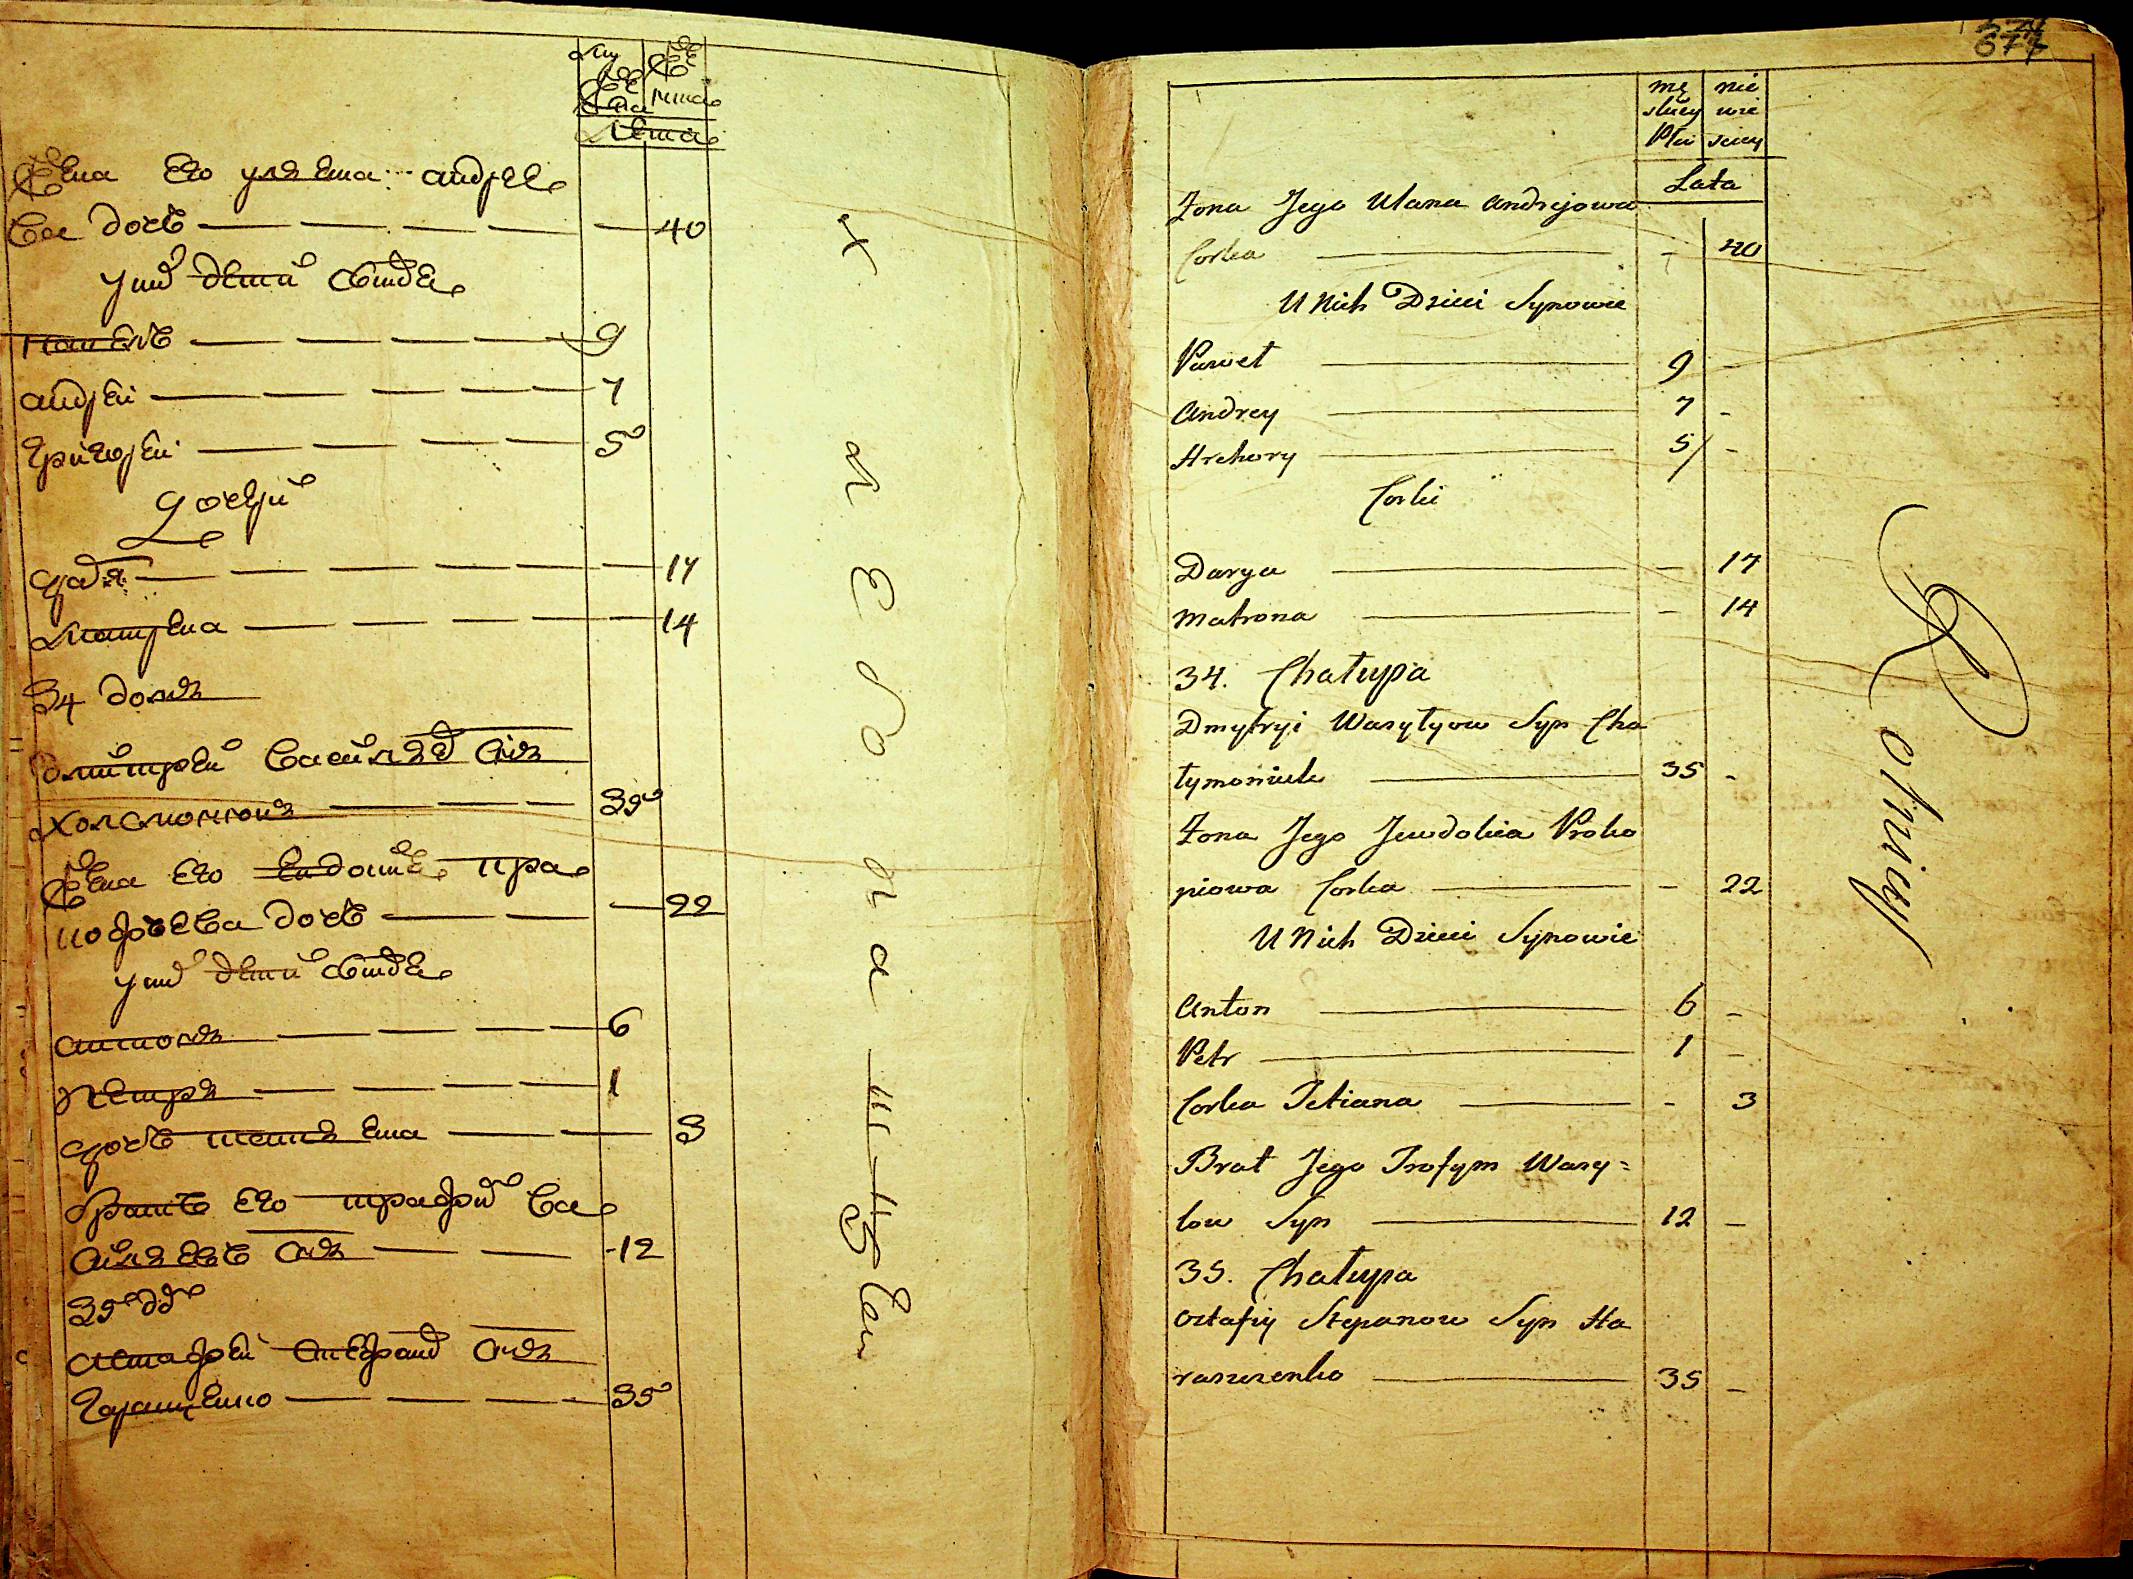 Жена его уляна андрее
ва дочь — 40
у них дети своиде
павелъ — 9
андреи — 7
григореи — 5
дочери
даря — 17
матрена — 14
34 домъ
дмитреи василевъ снъ
— 35
Жена его евдотя пра
кофьева дочь — 22
у них дети
антонъ — 6
петръ — 1
дочь татяна — 3
братъ его трафим ва
силевъ снъ — 12
35
астафеи степанов снъ
гаращенко — 35
674
677
mę skiey Płci
nie wie sciey
Lata
Zona Jego Ulana Andrejowa
Corka — 40
U Nich Dzieci Synowie
Paweł — 9 -
Andrey — 7 -
Hrehory — 5 -
Corki
Darya — 17
Matrona — 14
34. Chałupa
Dmytryi Wasylyow Syn Cha
łymoniuk — 35 -
Zona Jego Jewdokia Proko
piowa Corka — 22
U Nich Dzieci Synowie
Anton — 6 -
Petr — 1 -
Corka Tetiana — 3
Brat Jego Trofym Wasy=
low Syn — 12 -
35. Chałupa
Ostafiy Stepanow Syn Ha
raszczenko — 35 -